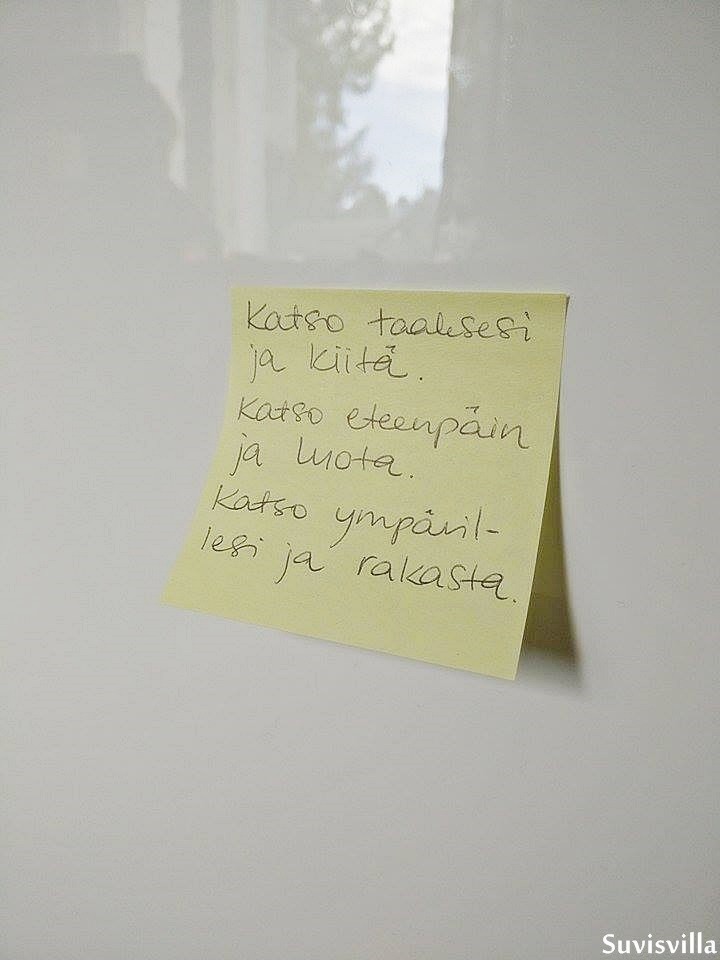 Katso taaksesi
ja kiitä.
Katso eteenpäin
ja luota.
Katso ympäril-
lesi ja rakasta.
Suvisvilla